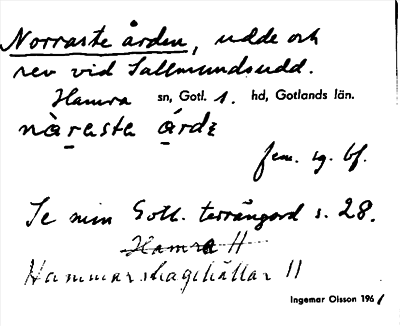 Norraste ården, udde och
rev vid Sallmundsudd.
Hamra sn, Gotl. S. hd, Gotlands län.
nàrasta årdɛ
fem. sg. bf.
Se min Gotl. terrängord s. 28.
Hamra H
Hammarshagehällar II
Ingemar Olsson 1961